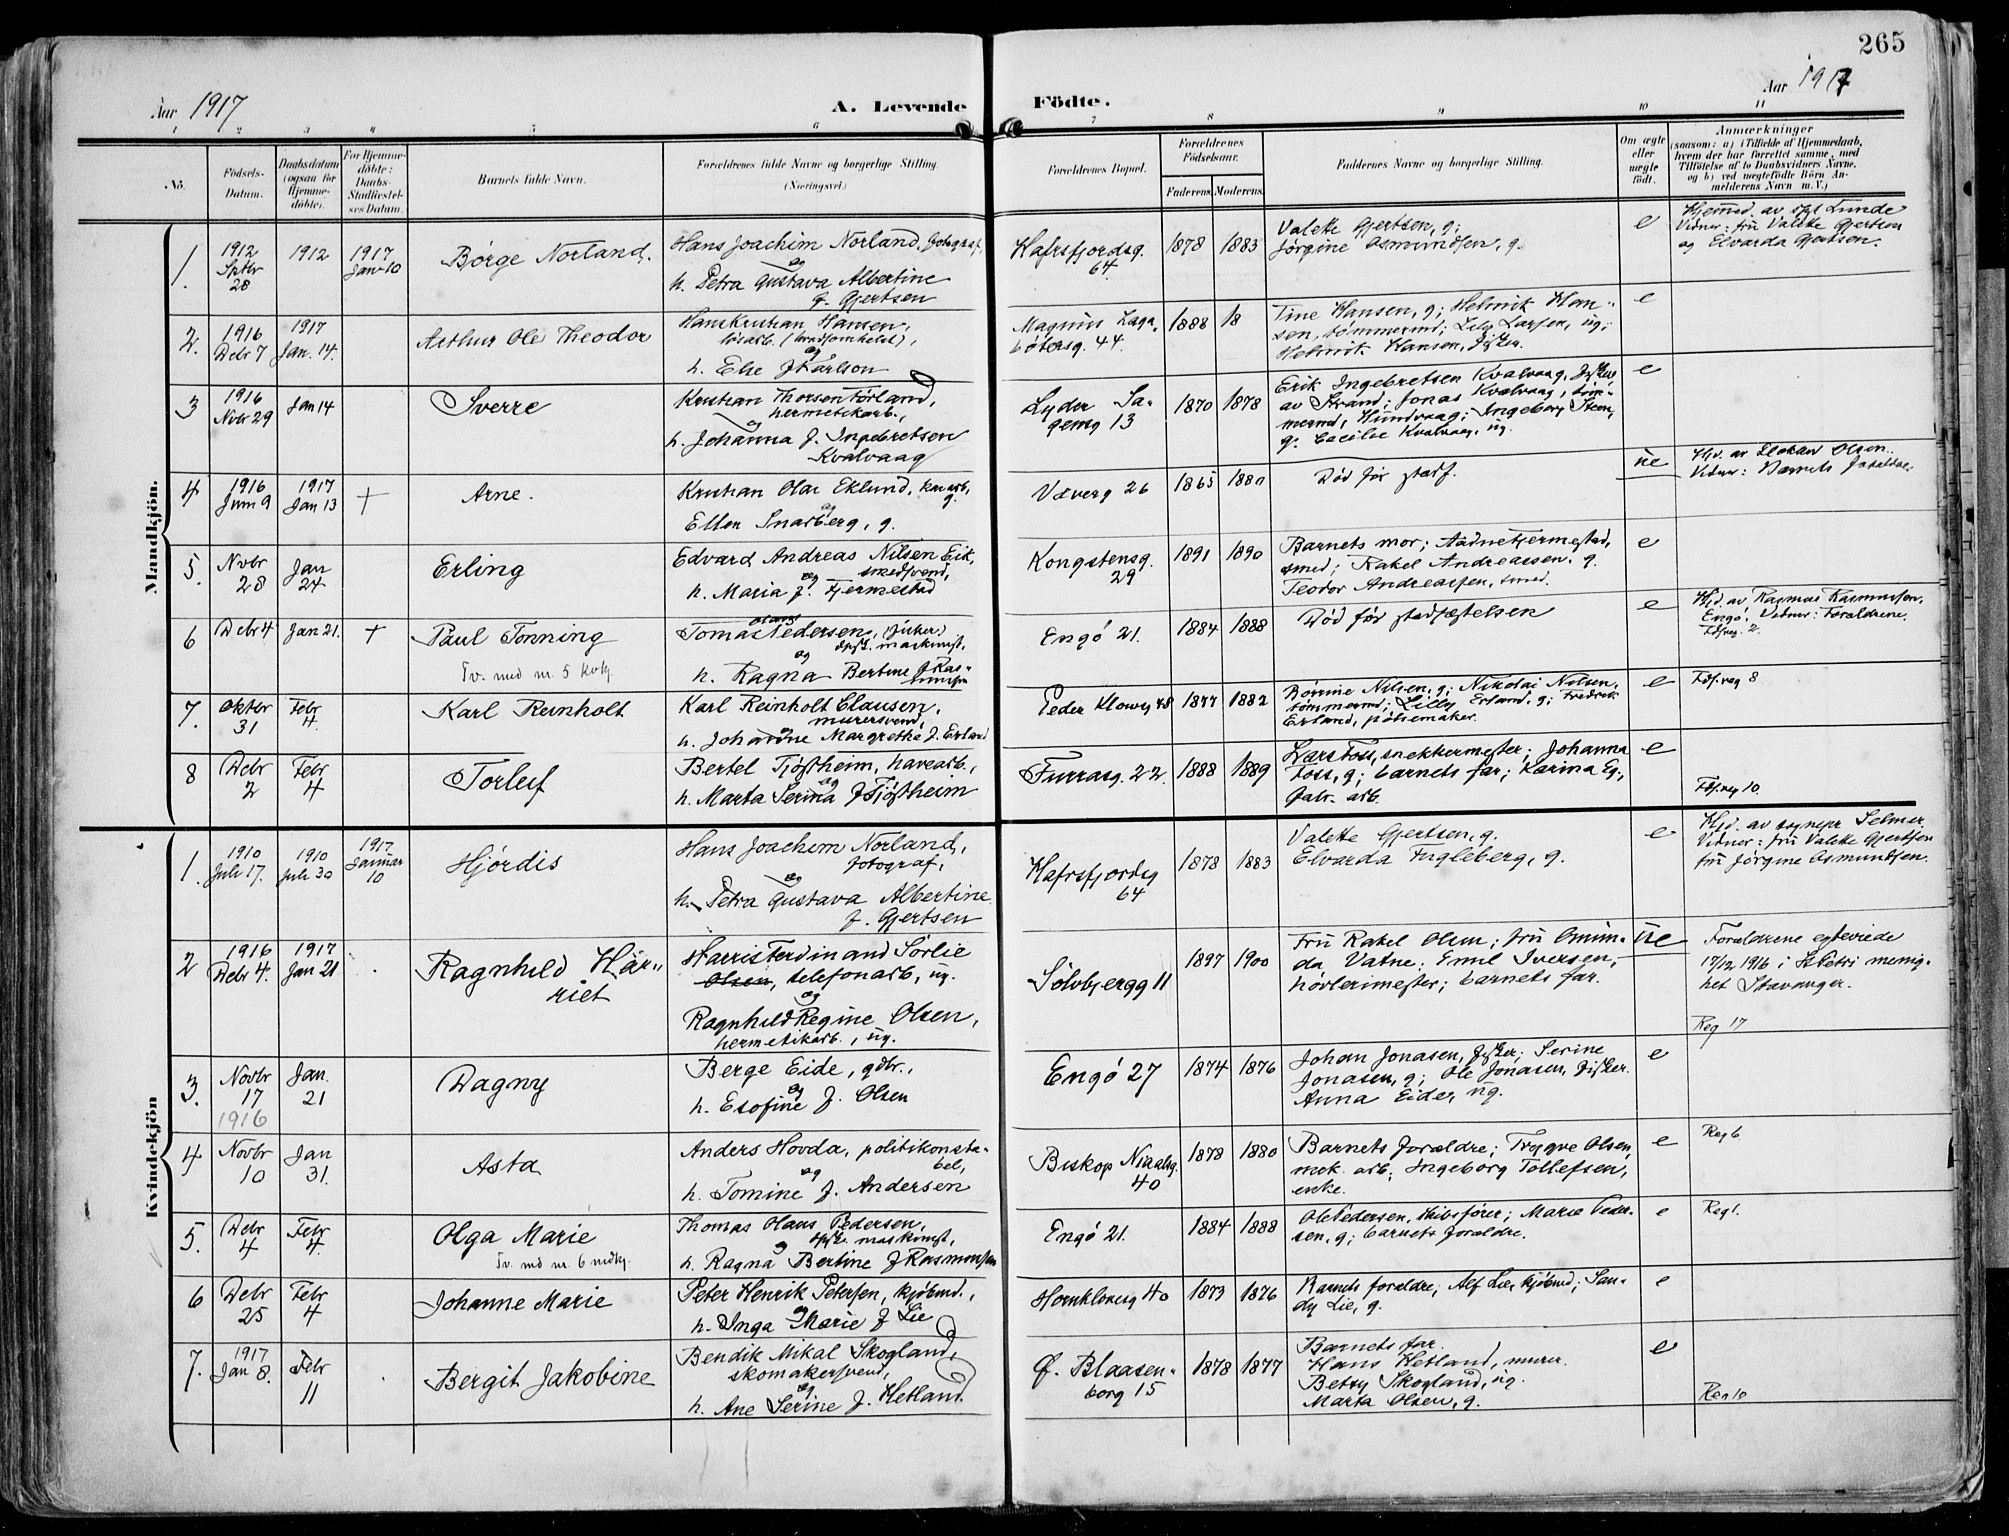 265
Aar 1917
A. Levende
Födte.
Aar 1917
1 2 3 4 5 6 7 8 9 10 11
No.
Födsels-
Datum.
Daabsdatum
(ogsaa för
Hjemme-
döbte).
For Hjemme-
döbte:
Daabs-
Stadfæstel-
ses Datum.
Barnets fulde Navn.
Forældrenes fulde Navne og borgerlige Stilling.
(Næringsvei.)
Forældrenes Bopæl.
Forældrenes
Födselsaar.
Faderens. Moderens.
Faddernes Navne og borgerlige Stilling.
Om ægte
eller
uægte
født.
Anmærkninger
(saasom: a) i Tilfælde af Hjemmedaab,
hvem der har forrettet samme, med
Tilföielse af to Daabsvidners Navne,
og b) ved uægtefödte Börn An-
melderens Navn m. V.)
Mandkjön.
1. 1912 Sptbr 28 1912 1917 Jan 10 Børge Norland.
Hans Joachim Norland, fotograf,
og
h. Petra Gustava Albertine
f. Gjertsen
Hafrsfjordsg. 64 1878 1883
Valette Gjertsen, g;
Jørgine Osmundsen, g.
e
Hjemmed. av Lunde
Vidner: fru Valette Gjertsen
og Elvarda Gjertsen.
2. 1916 Debr 7 1917 Jan. 14. Arthur Ole Theodor
Hans Kristian Hansen,
løsarb.
og
h. Else f. Karlson
Magnus Laga-
bøtersg. 44. 1888 18
Tine Hansen, g; Helmik Han-
sen, tømmermd; Lilly Larsen, ug;
Helmik Hansen, fisker.
e
3 1916 Nvbr 29 Jan 14 Sverre
Kristian Thorsen Førland,
hermetikarb.,
og
h. Johanna f. Ingebretsen
Kvalvaag
Lyder Sa-
gensg 13 1870 1878
Erik Ingebretsen Kvalvaag, fisker
av Strand; Jonas Kvalvaag, tøm-
mermd, Hundvaag; Ingeborg Steen,
g. Cecilie Kvalvaag, ug.
e
4 1916 Juni 9 1917 Jan 13 † Arne.
Kristian Olai Eklund, g.
og
Ellen Snarberg, g.
26 1865 1880
Død før stadf.
ue
Hjd. av Olsen.
Vidner: Barnets
5. Nvbr 28 Jan 24 Erling
Edvard Andreas Nilsen Eik,
smedsvend,
og
h. Maria f. Tjermestad
Kongstensg. 29 1891 1890
Barnets mor; Aadne Tjermestad,
smed; Rakel Andreassen, g.
Teodor Andreassen, smed.
e
6 Debr 4 Jan 21. † Paul Tønning
Tv. med nr. 5 kvkj.
Olaus
Tomas Pedersen,
dpsk. maskinist,
og
h. Ragna Bertine f. Ras-
mussen
Engø 21. 1884 1888
Død før stadfæstelsen
e
Hjd. av Rasmus Rasmussen,
Engø. Vidner: Forældrene.
Fdsreg. 2.
7. Oktbr 31 Febr 4. Karl Reinholt
Karl Reinholt Clausen,
murersvend,
og
h. Johanne Margrethe f. Erland
Peder Klowsg 48 1877 1882
Nilsen, g; Nikolai Nilsen,
tømmermd; Lilly Erland, g; Fredrik
Erland, pølsemaker.
e
Fdsreg 8
8 Debr 2 Febr 4 Torleif
Bertel Tjøstheim, havearb.,
og
h. Marta Serina f Tjøstheim
Furrasg. 22. 1888 1889
Lars Foss, snekkermester; Johanna
Foss, g; barnets far; Karina Eg,
fabr. arb.
e
Fdsreg 10.
Kvindekjön
1. 1910 Juli 17. 1910 Juli 30 1917 Januar 10 Hjørdis
Hans Joachim Norland,
fotograf,
og
h. Petra Gustava Albertine
f. Gjertsen
Hafrsfjordsg 64 1878 1883
Valette Gjertsen, g.
Elvarda Fugleberg, g.
e
Hjd. av sognepr Selmer
Vidner: fru Valette Gjertsen
fru Jørgine Osmundsen.
2 1916 Debr 4. 1917 Jan 21 Ragnhild Har-
riet
Harris Ferdinand Sørlie
Olsen, telefonarb, ug.
og
Ragnhild Regine Olsen,
hermetikarb., ug.
Sølvbjergg 11 1897 1900
Fru Rakel Olsen; fru Omun-
da Vatne. Emil Iversen,
høvlerimester; barnets far.
ue
Forældrene egteviede
17/12 1916 i St Petri menig-
het Stavanger.
Reg 17
3. Novbr 17 1916 Jan. 21 Dagny
Berge Eide, gdbr.,
og
h. Esofine f. Olsen
Engø 27 1874 1876
Johan Jonasen, fisker; Serine
Jonasen, g; Ole Jonasen, fisker.
Anna Eide, ug.
e
4 Novbr 10 Jan 31. Asta
Anders Hovda, politikonsta-
bel,
og
h. Tomine f. Andersen
Biskop Nialsg. 40 1878 1880
Barnets forældre; Trygve Olsen,
mek. arb; Ingeborg Tollefsen,
enke.
e
Reg 6
5. Debr 4 Febr 4 Olga Marie
Tv. md nr. 6 mdkj.
Thomas Olaus Pedersen,
dpsk. maskinist,
og
h. Ragna Bertine f Rasmussen
Engø 21. 1884 1888
Ole Pedersen, skibsfører; Marie Peder-
sen, g; barnets forældre.
e
Reg 1.
6 Debr 25 Febr 4 Johanne Marie
Peter Henrik Petersen, kjøbmd.,
og
h. Inga Marie f Lie
Hornklovesg 40 1873 1876
Barnets forældre; Alf Lie, kjøbmd; San-
dy Lie, g.
e
7. 1917 Jan 8. Febr 11 Bergit Jakobine
Bendik Mikal Skogland,
skomakersvend,
og
h. Ane Serine f. Hetland.
Ø. Blaasen-
borg 15 1878 1877
Barnets far.
Hans Hetland, murer.
Betsy Skogland, ug.
Marta Olsen, g.
e
Reg 10